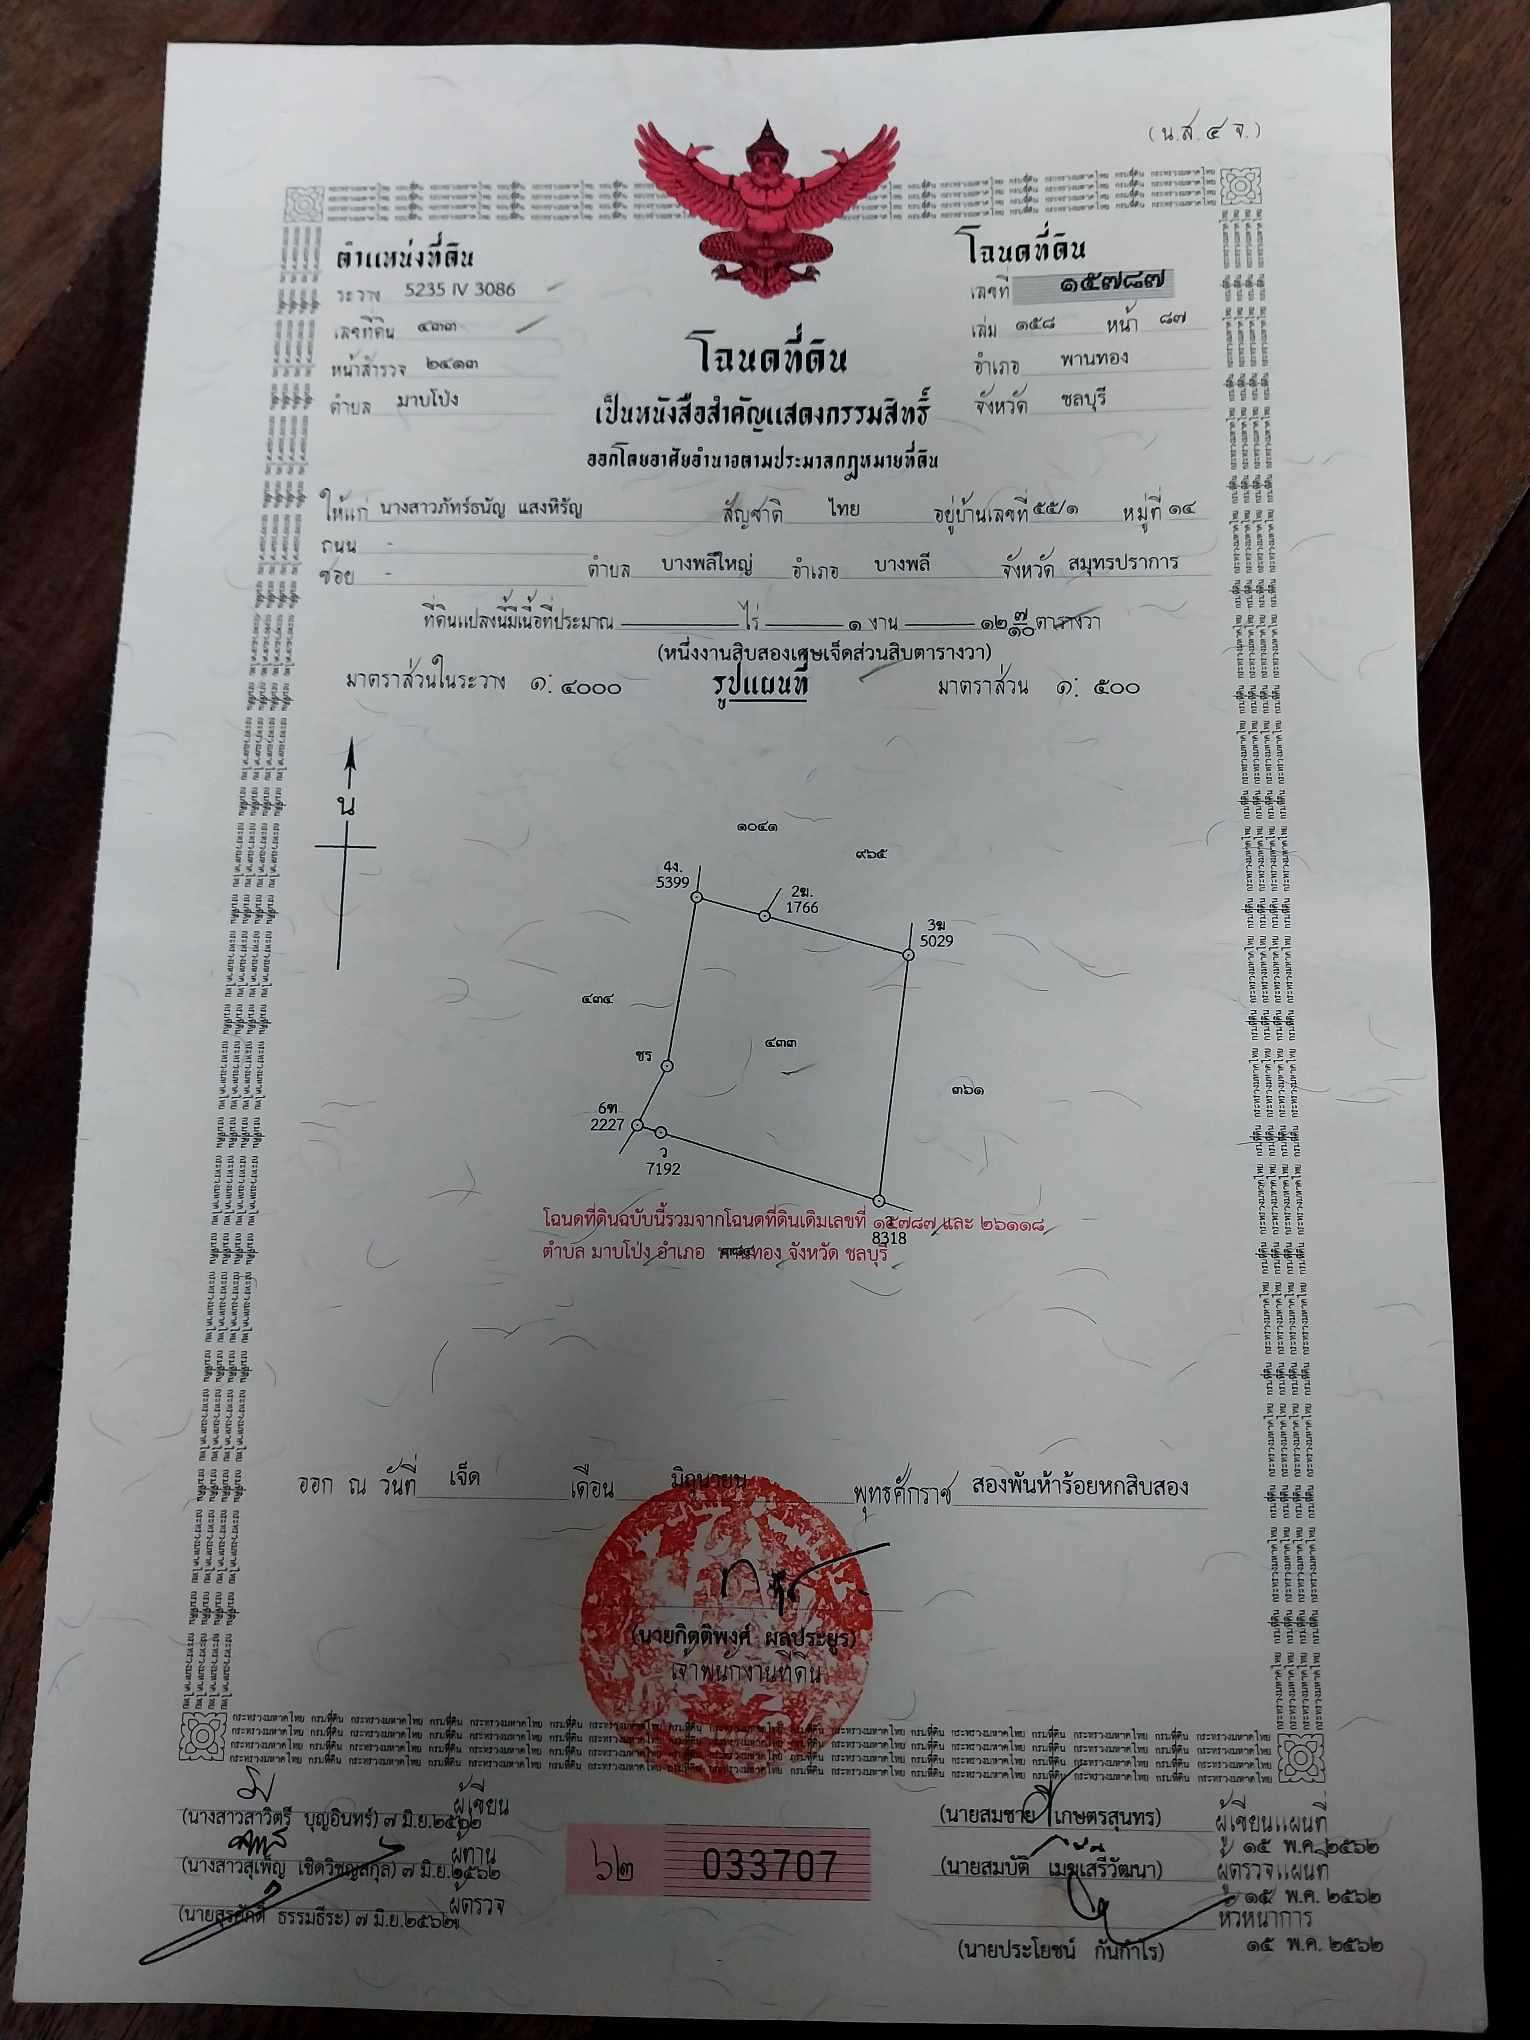 (น.ส. ๔ จ.)
ตำแหน่งที่ดิน
ระวาง 5235 IV 3086
เลขที่ดิน ๔๓๓
หน้าสำรวจ ๒๔๑๓
ตำบล มาบโป่ง
โฉนดที่ดิน
เลขที่ ๑๕๗๘๗
เล่ม ๑๕๘ หน้า ๘๗
อำเภอ พานทอง
จังหวัด ชลบุรี
โฉนดที่ดิน
เป็นหนังสือสำคัญแสดงกรรมสิทธิ์
ออกโดยอาศัยอำนาจตามประมวลกฎหมายที่ดิน
ให้แก่ นางสาวภัทร์ธนัญ แสงหิรัญ สัญชาติ ไทย อยู่บ้านเลขที่ ๕๕/๑ หมู่ที่ ๑๔
ถนน -
ซอย - ตำบล บางพลีใหญ่ อำเภอ บางพลี จังหวัด สมุทรปราการ
ที่ดินแปลงนี้มีเนื้อที่ประมาณ ไร่ ๑ งาน ๑๒ ๗/๑๐ ตารางวา
(หนึ่งงานสิบสองเศษเจ็ดส่วนสิบตารางวา)
มาตราส่วนในระวาง ๑: ๔๐๐๐ รูปแผนที่ มาตราส่วน ๑: ๕๐๐
น
๑๐๔๑
๙๖๕
4ง.
5399
2ฆ.
1766
3ฆ
5029
๔๓๔
๔๓๓
ชร
๓๖๑
6ฑ
2227
ว
7192
โฉนดที่ดินฉบับนี้รวมจากโฉนดที่ดินเดิมเลขที่ ๑๕๗๘๗ และ ๒๖๑๑๘
8318
ตำบล มาบโป่ง อำเภอ พานทอง จังหวัด ชลบุรี
ออก ณ วันที่ เจ็ด เดือน มิถุนายน พุทธศักราช สองพันห้าร้อยหกสิบสอง
(นายกิตติพงศ์ ผลประยูร)
เจ้าพนักงานที่ดิน
กระทรวงมหาดไทย กรมที่ดิน
ผู้เขียน
(นางสาวสาวิตรี บุญอินทร์) ๗ มิ.ย.๒๕๖๒
ผู้ทาน
(นางสาวสุเพ็ญ เชิดวิชญสกุล) ๗ มิ.ย.๒๕๖๒
ผู้ตรวจ
(นายสุรศักดิ์ ธรรมธีระ) ๗ มิ.ย.๒๕๖๒
๖๒ 033707
(นายสมชาย เกษตรสุนทร) ผู้เขียนแผนที่
๑๕ พ.ค. ๒๕๖๒
(นายสมบัติ เมฆเสรีวัฒนา) ผู้ตรวจแผนที่
๑๕ พ.ค. ๒๕๖๒
หัวหน้าการ
(นายประโยชน์ กันกำไร) ๑๕ พ.ค. ๒๕๖๒